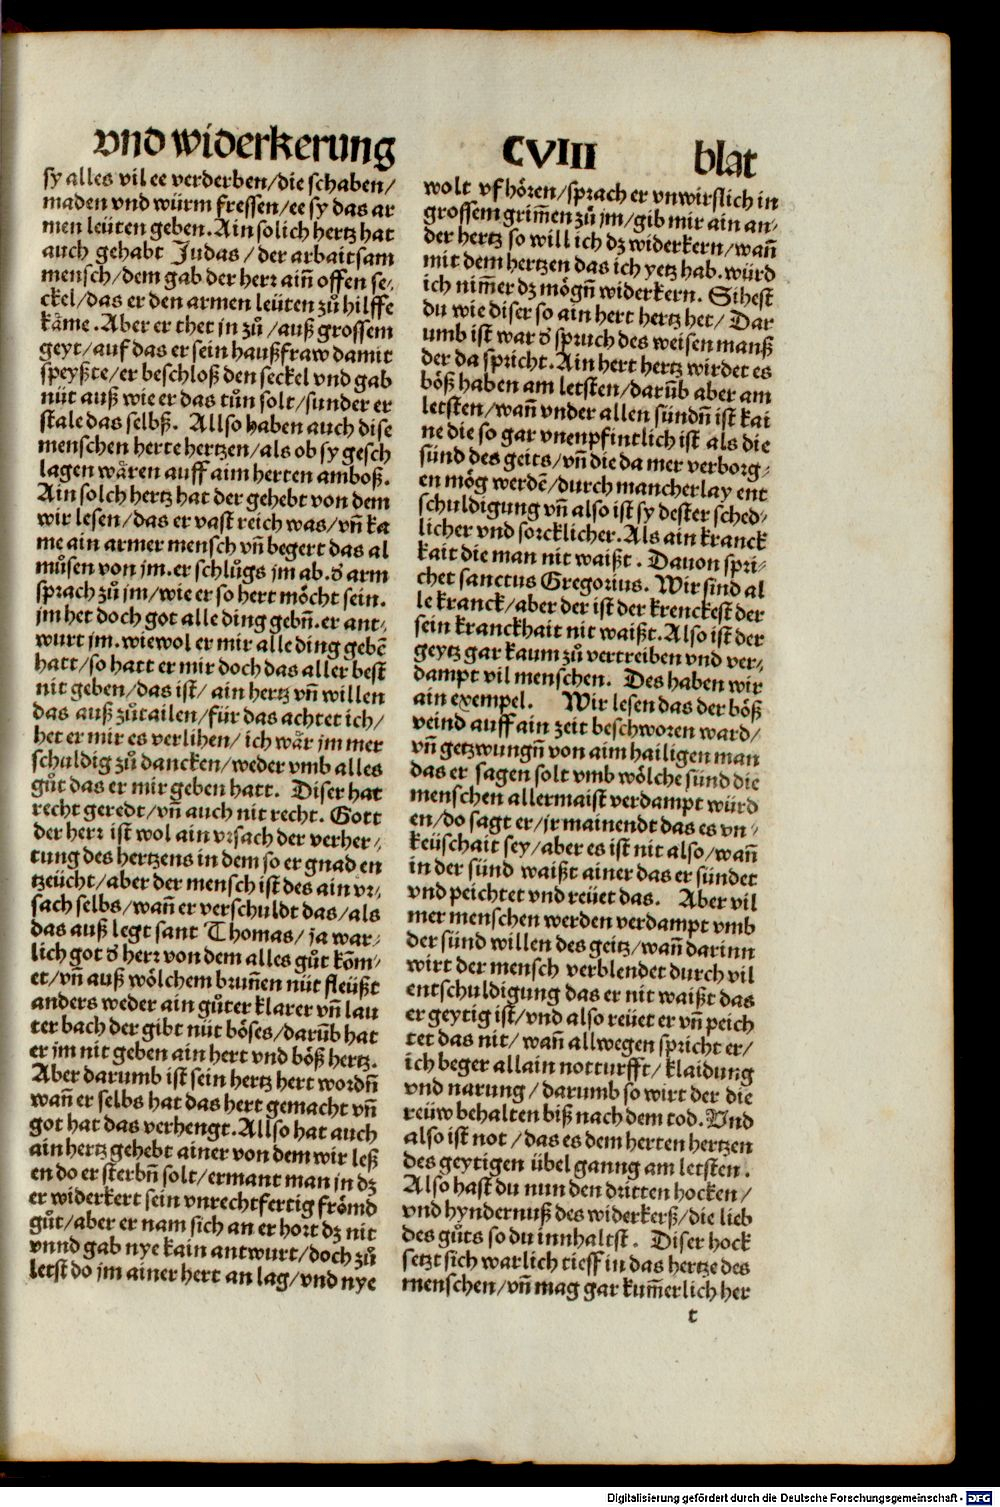 vnd widerkerung CVIII blat
sy alles vil ee verderben/die schaben/
maden vnd würm fressen/ee sy das ar
men leüten geben. Ain solich hertz hat
auch gehabt Judas/der arbaitsam
mensch/dem gab der herr ainñ offen se⸗
ckel/das er den armen leüten zů hilffe
käme. Aber er thet jn zů/auß grossem
geyt/auf das er sein haußfraw damit
speyßte/er beschloß den seckel vnd gab
nüt auß wie er das tůn solt/sunder er
stale das selbß. Allso haben auch dise
menschen herte hertzen/als ob sy gesch
lagen wären auff aim herten amboß.
Ain solch hertz hat der gehebt von dem
wir lesen/das er vast reich was/vñ ka
me ain armer mensch vñ begert das al
můsen von jm. er schlůgs jm ab. d̕ arm
sprach zů jm/wie er so hert möcht sein.
jm het doch got alle ding gebñ. er ant⸗
wurt jm. wiewol er mir alle ding gebē
hatt/so hatt er mir doch das aller best
nit geben/das ist/ ain hertz vñ willen
das auß zůtailen/für das achtet ich/
het er mir es verlihen/ ich wär jm mer
schuldig zů dancken/weder vmb alles
gůt das er mir geben hatt. Diser hat
recht geredt/vñ auch nit recht. Gott
der herr ist wol ain vrsach der verher⸗
tung des hertzens in dem so er gnad en
tzeücht/aber der mensch ist des ain vr⸗
sach selbs/wañ er verschuldt das/als
das auß legt sant Thomas/ ja war⸗
lich got d̕ herr von dem alles gůt kōm⸗
et/vñ auß wölchem bruñen nüt fleüßt
anders weder ain gůter klarer vñ lau
ter bach der gibt nüt böses/darūb hat
er jm nit geben ain hert vnd böß hertz.
Aber darumb ist sein hertz hert wordñ
wañ er selbs hat das hert gemacht vñ
got hat das verhengt. Allso hat auch
ain hertz gehebt ainer von dem wir leß
en do er sterbñ solt/ermant man jn dz
er widerkert sein vnrechtfertig frömd
gůt/aber er nam sich an er hort dz nit
vnnd gab nye kain antwurt/doch zů
letst do jm ainer hert an lag/vnd nye
wolt vf hören/sprach er vnwirslich in
grossem grim̄en zů jm/gib mir ain an⸗
der hertz so will ich dz widerkern/wañ
mit dem hertzen das ich yetz hab. würd
ich nim̄er dz mögñ widerkern. Sihest
du wie diser so ain hert hertz het/ Dar
umb ist war d̕ spruch des weisen manß
der da spricht. Ain hert hertz wirdet es
böß haben am letsten/darūb aber am
letsten/wañ vnder allen sündñ ist kai
ne die so gar vnenpfintlich ist als die
sünd des geits/vñ die da mer verborg⸗
en mög werdē/durch mancherlay ent
schuldigung vñ also ist sy dester sched⸗
licher vnd sorcklicher. Als ain kranck
kait die man nit waißt. Dauon spri⸗
chet sanctus Gregorius. Wir sind al
le kranck/aber der ist der krenckest der
sein kranckhait nit waißt. Also ist der
geytz gar kaum zů vertreiben vnd ver⸗
dampt vil menschen. Des haben wir
ain exempel. Wir lesen das der böß
veind auff ain zeit beschworen ward/
vñ getzwungñ von aim hailigen man
das er sagen solt vmb wölche sünd die
menschen allermaist verdampt würd
en/do sagt er/jr mainendt das es vn⸗
keüschait sey/aber es ist nit also/wañ
in der sünd waißt ainer das er sündet
vnd peichtet vnd reüet das. Aber vil
mer menschen werden verdampt vmb
der sünd willen des geitz/wañ darinn
wirt der mensch verblendet durch vil
entschuldigung das er nit waißt das
er geytig ist/vnd also reüet er vñ peich
tet das nit/ wañ allwegen spricht er/
ich beger allain notturfft/klaidung
vnd narung/darumb so wirt der die
reüw behalten biß nach dem tod. Vnd
also ist not/das es dem herten hertzen
des geytigen übel ganng am letsten.
Also hast du nun den dritten hocken/
vnd hyndernuß des widerkerß/die lieb
des gůts so du innhaltst. Diser hock
setzt sich warlich tieff in das hertze des
menschen/vñ mag gar kum̄erlich her
t
Digitalisierung gefördert durch die Deutsche Forschungsgemeinschaft - DFG